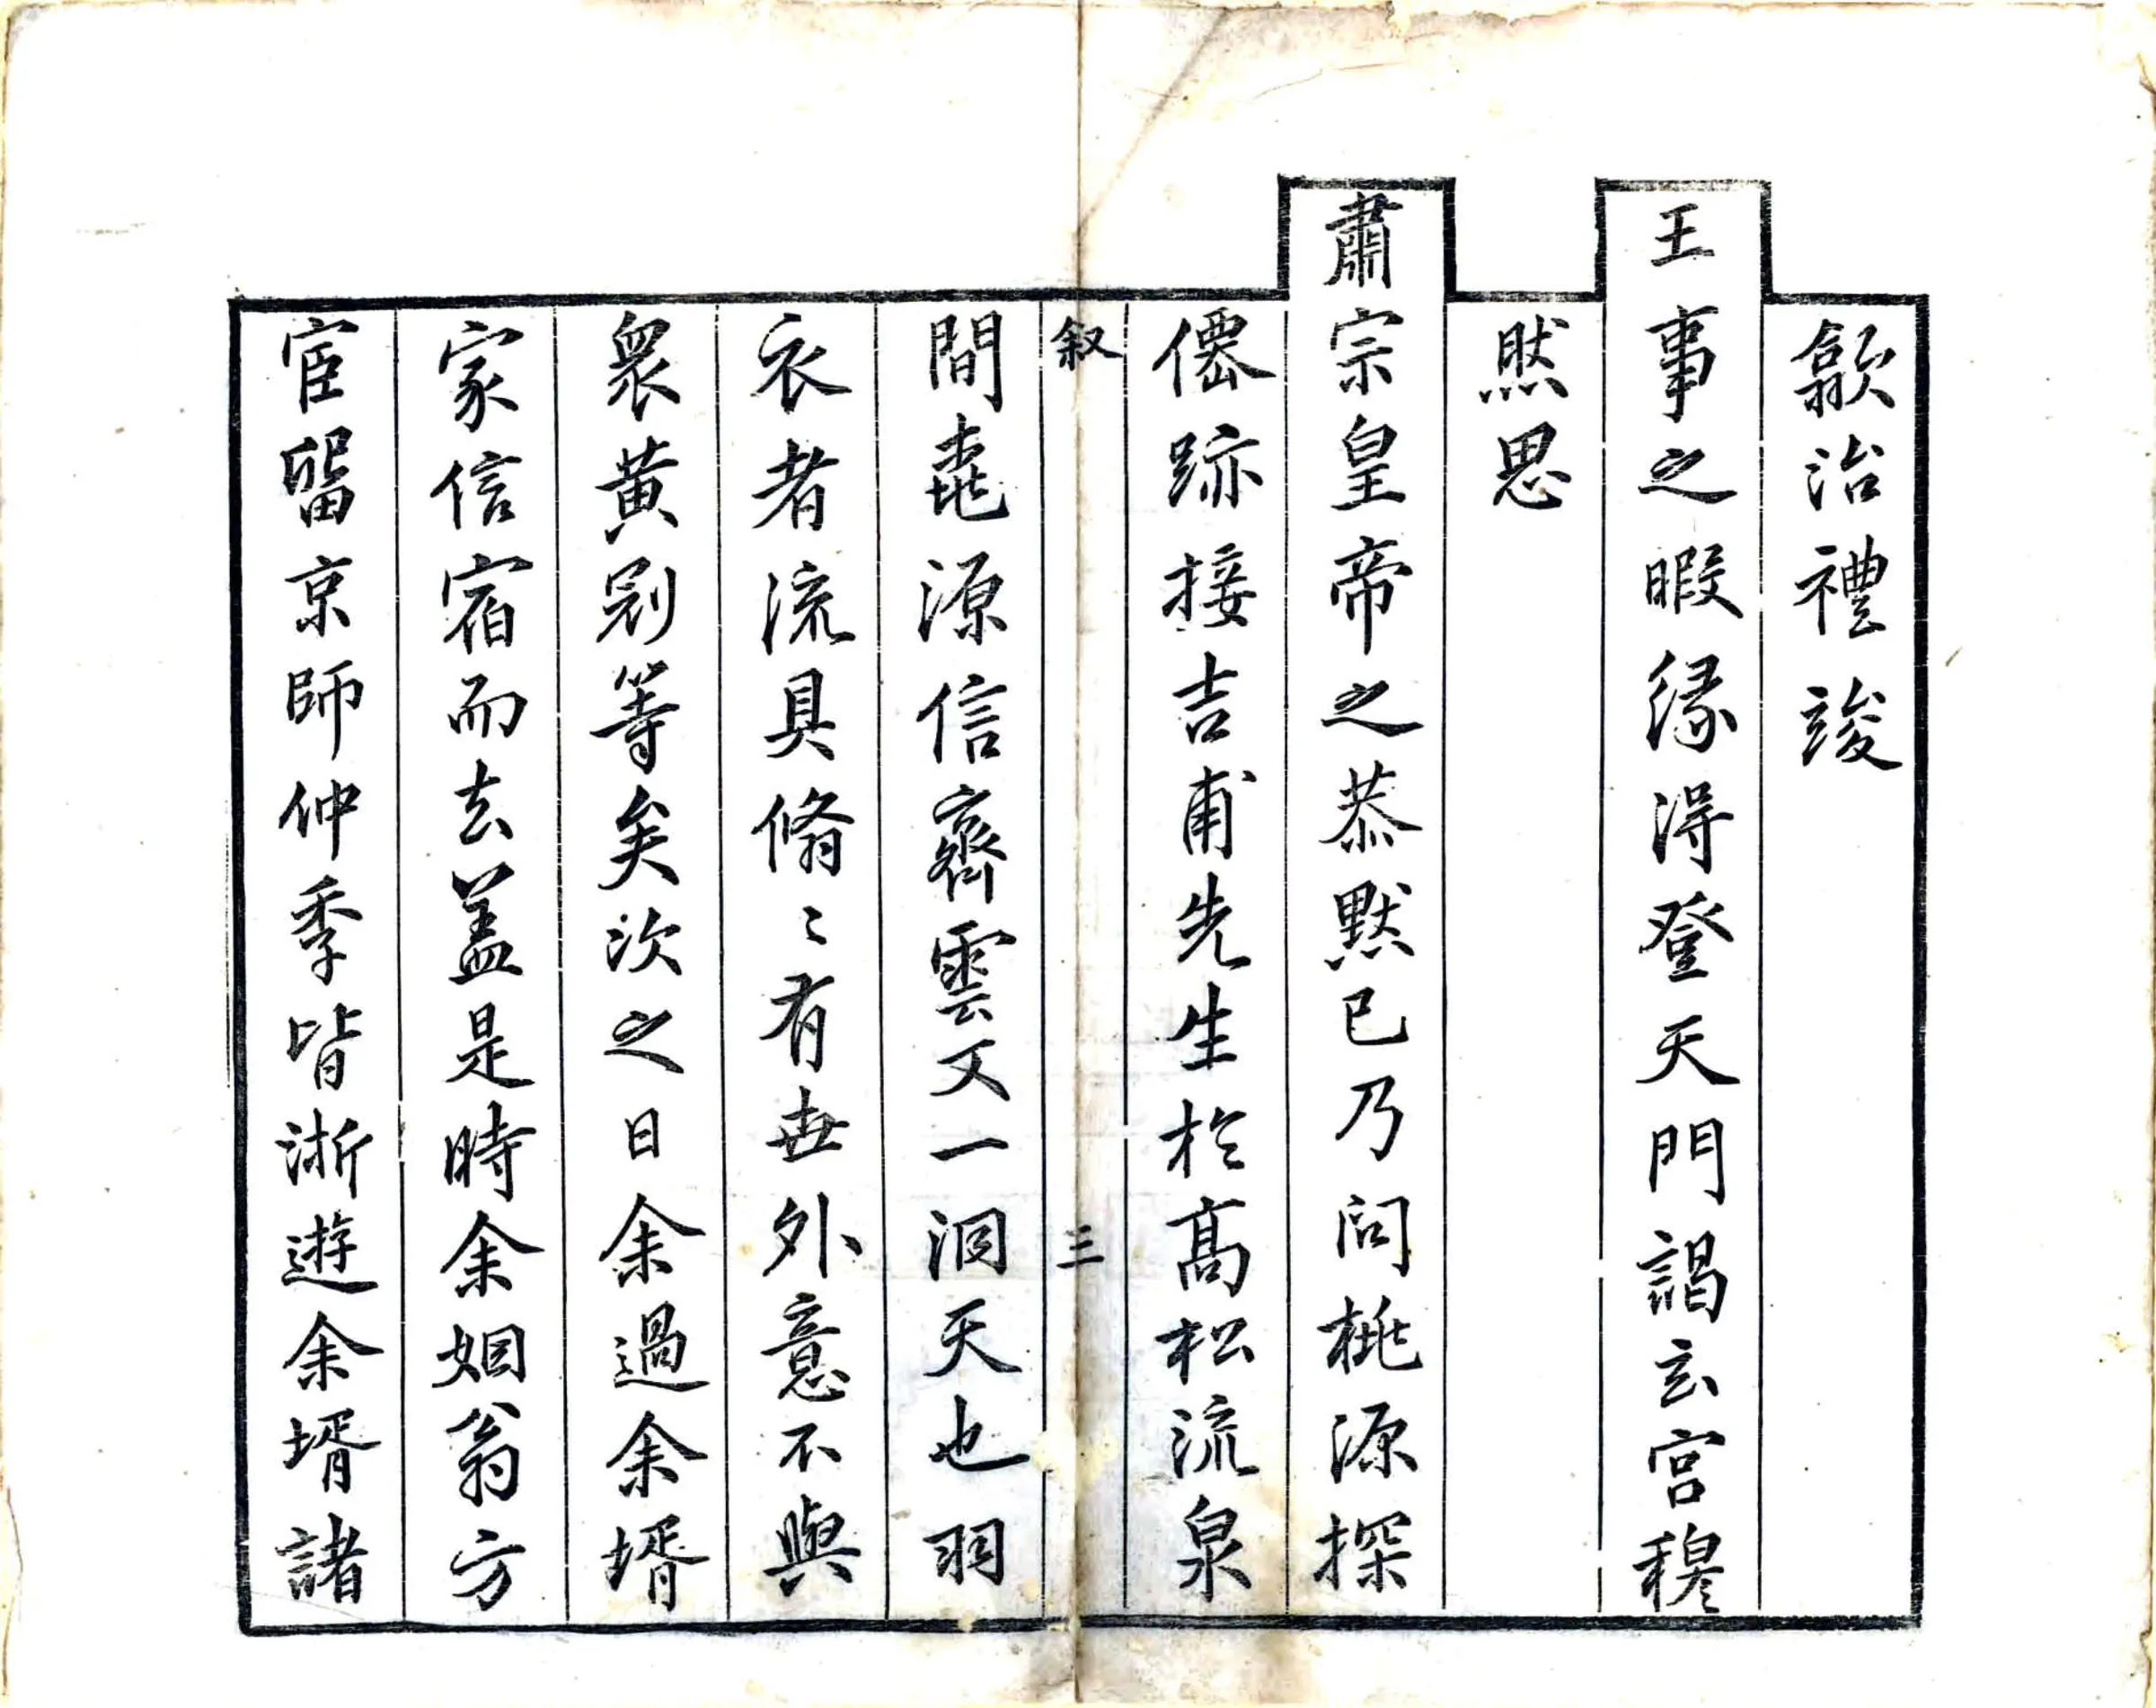 歙治禮竣
王事之暇緣得登天門謁玄宮穆
然思
肅宗皇帝之恭默已乃問桃源探
僊跡接吉甫先生於髙松流泉
叙 三
間桒源信齊雲又一洞天也羽
衣者流具翛〻有世外意不與
衆黄冠等矣次之日余過余壻
家信宿而去盖是時余姻翁方
宦畱京師仲季皆浙遊余壻諸